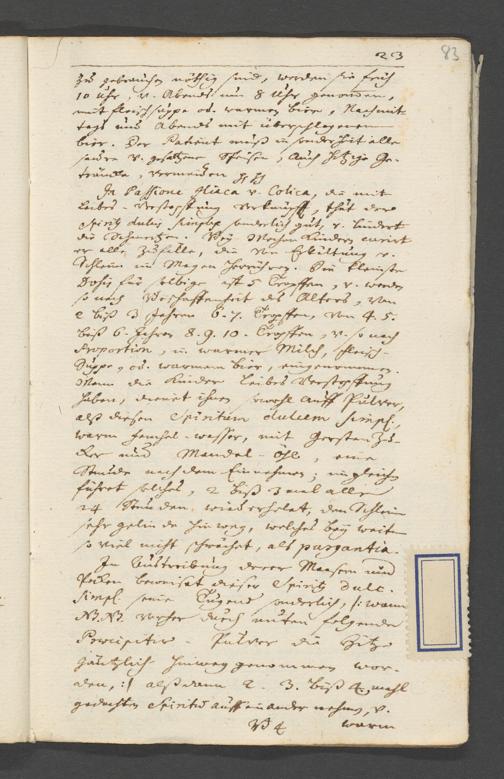 23
83
zu gebrauchen nöthig sind, werden sie früh
10 Uhr, u. Abends um 8 Uhr genommen,
mit fleisch suppe od. warmen bier, Nachmit
tags und Abends mit überschlagenem
bier. Der Patient muß in sonderheit alle
saure u. gesaltzene Speisen, auch hitzige Ge-
träncke, vermeiden
In Passione Iliaca v. Colica, die mit
Leibes-Verstopffung verknüpfft, thut der
Spirit dulc simplex sonderlich gut, u. lindert
die Schmertzen. Bey kleinen Kindern curirt
er alle Zufälle, die von Erkältung u.
Schleim im Magen herrühren. Die kleineste
Dosis für selbige ist 5 Tropffen, u. werden
so nach Beschaffenheit des Alters, von
2 biß 3 Jahren 6. 7. Tropffen, von 4. 5.
biß 6. Jahren 8. 9. 10. Tropffen, u. so nach
Proportion, in warmer Milch, fleisch-
Suppe, od. warmem bier, eingenommen.
Wann die Kinder Leibes Verstopffung
haben, dienet ihnen sowohl auff Pulver,
alß diesen Spiritum dulcem simpl.,
warm fenchel-wasser, mit Gersten Zu-
cker und Mandel-Öhl, eine
Stunde nach dem Einnehmen; ingleichen
führet solches, 2 biß 3 mal alle
24 Stunden wiederholet, den Schleim
sehr gelinde hinweg, welches bey weitem
so viel nicht schwächet, als purgantia.
In Austreibung derer Masern und
Pocken beweiset dieser Spirit dulc.
simpl. seine Tugend sonderlich, /: wann
NB. NB. vorher durch unten folgendes
Precipitir-Pulver die Hitze
gäntzlich hinweg genommen wor-
den, :/ alßdann 2. 3. biß 4 mahl
gedachten Spiritus auff einander nehmen, u.
warm